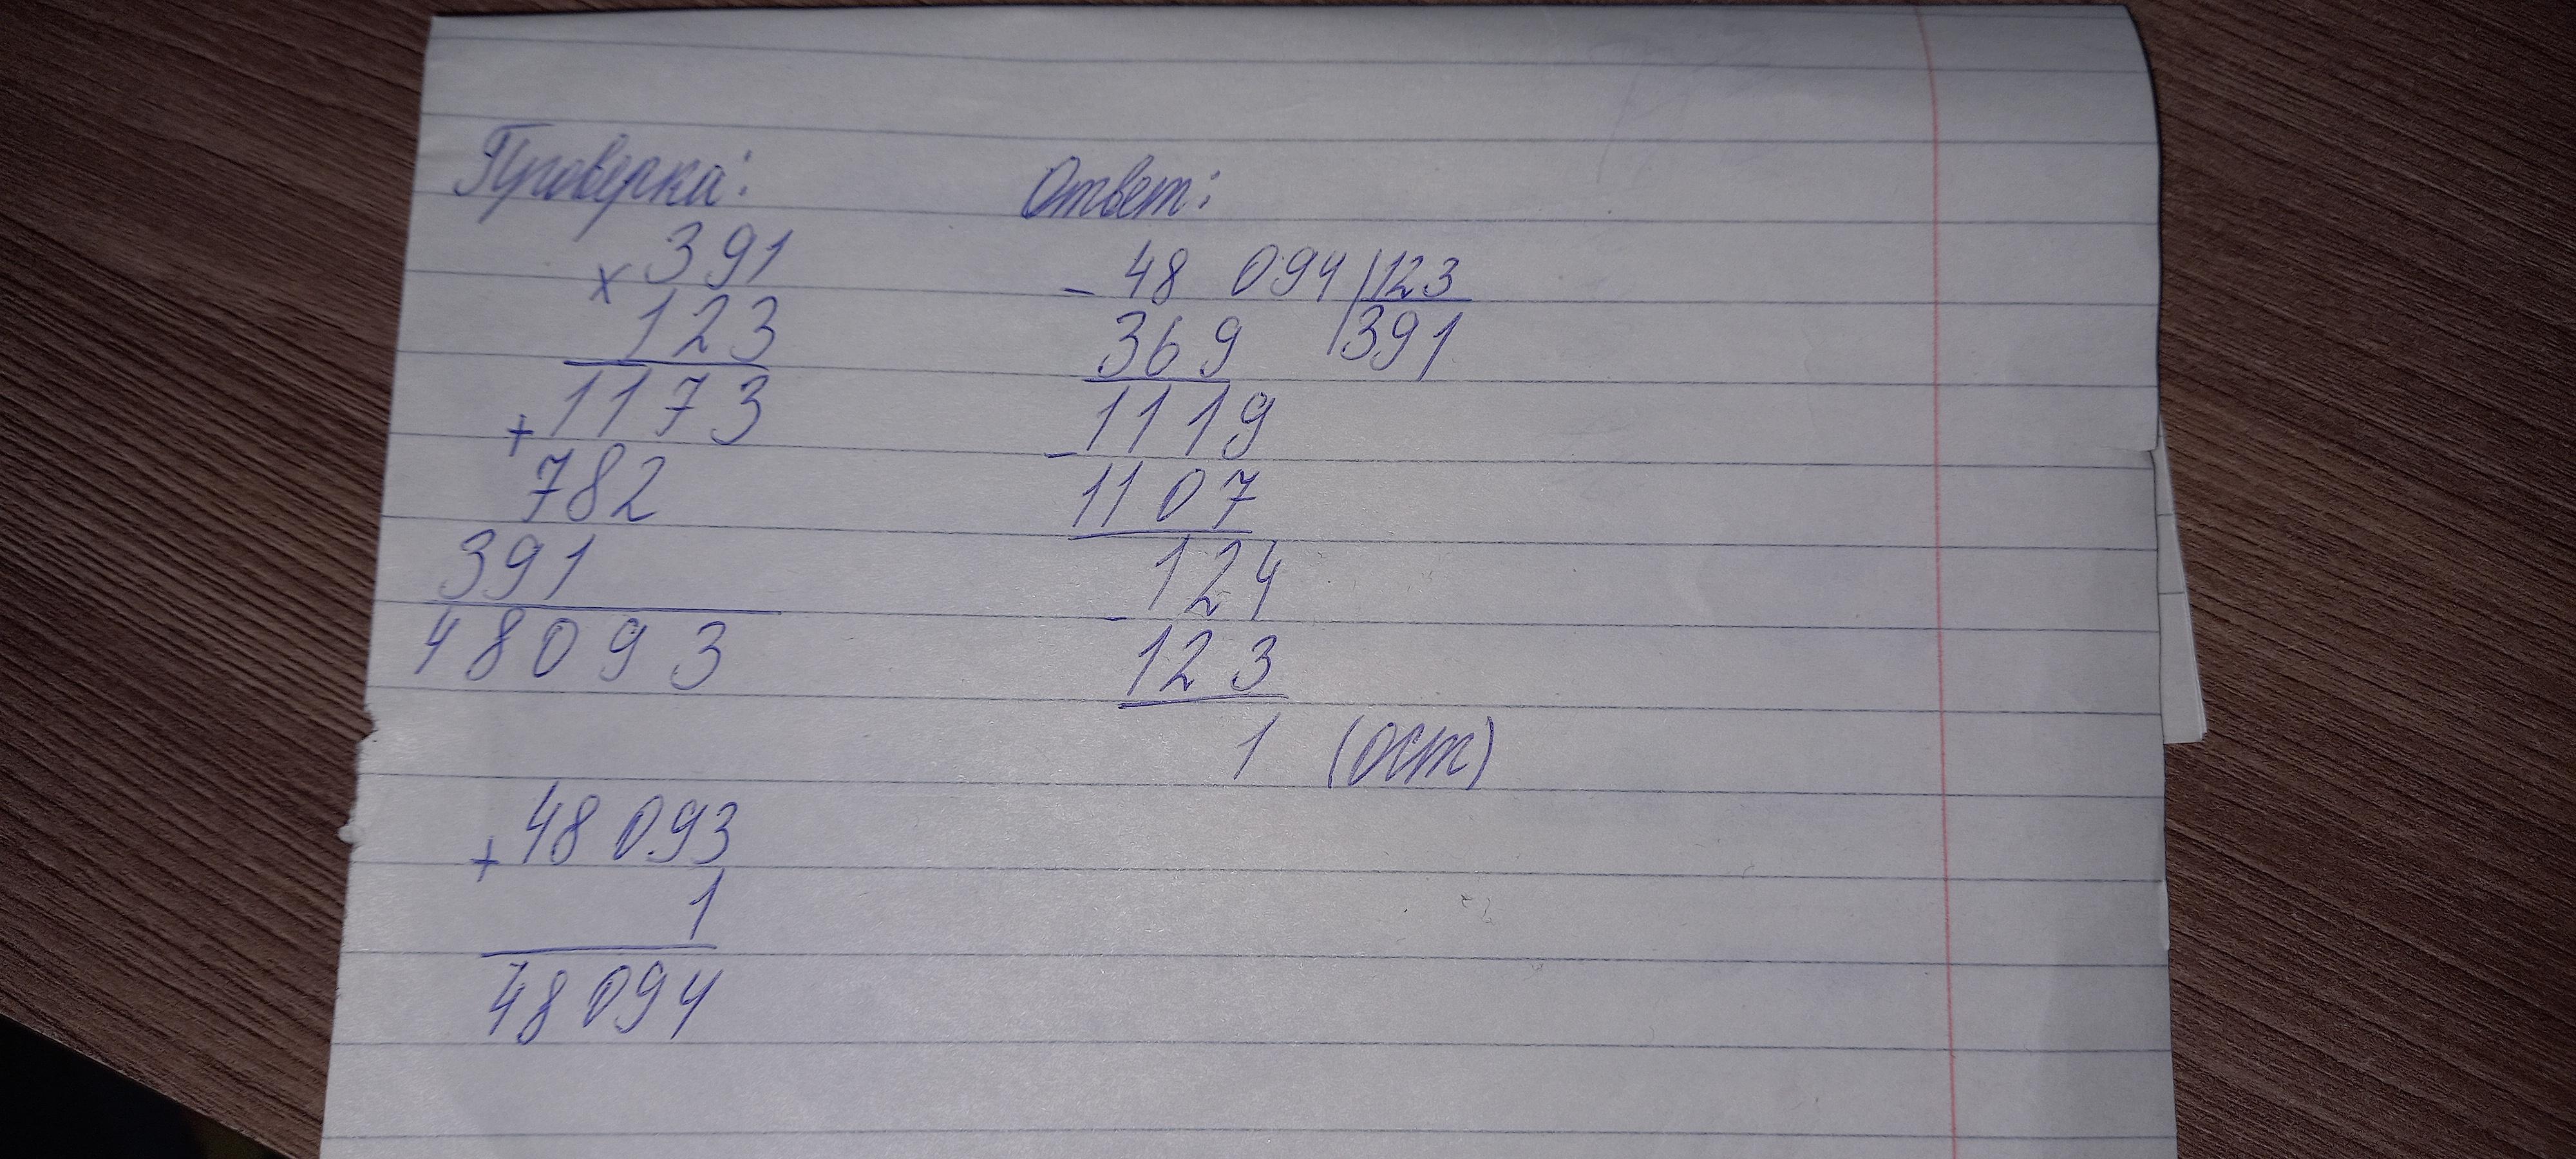 Проверка:
× 391
123
1173
+
782
391
48093
+ 48 093
1
48 094
Ответ:
- 48 094 | 123
369 | 391
1119
-
1107
124
-
123
1 (ост)